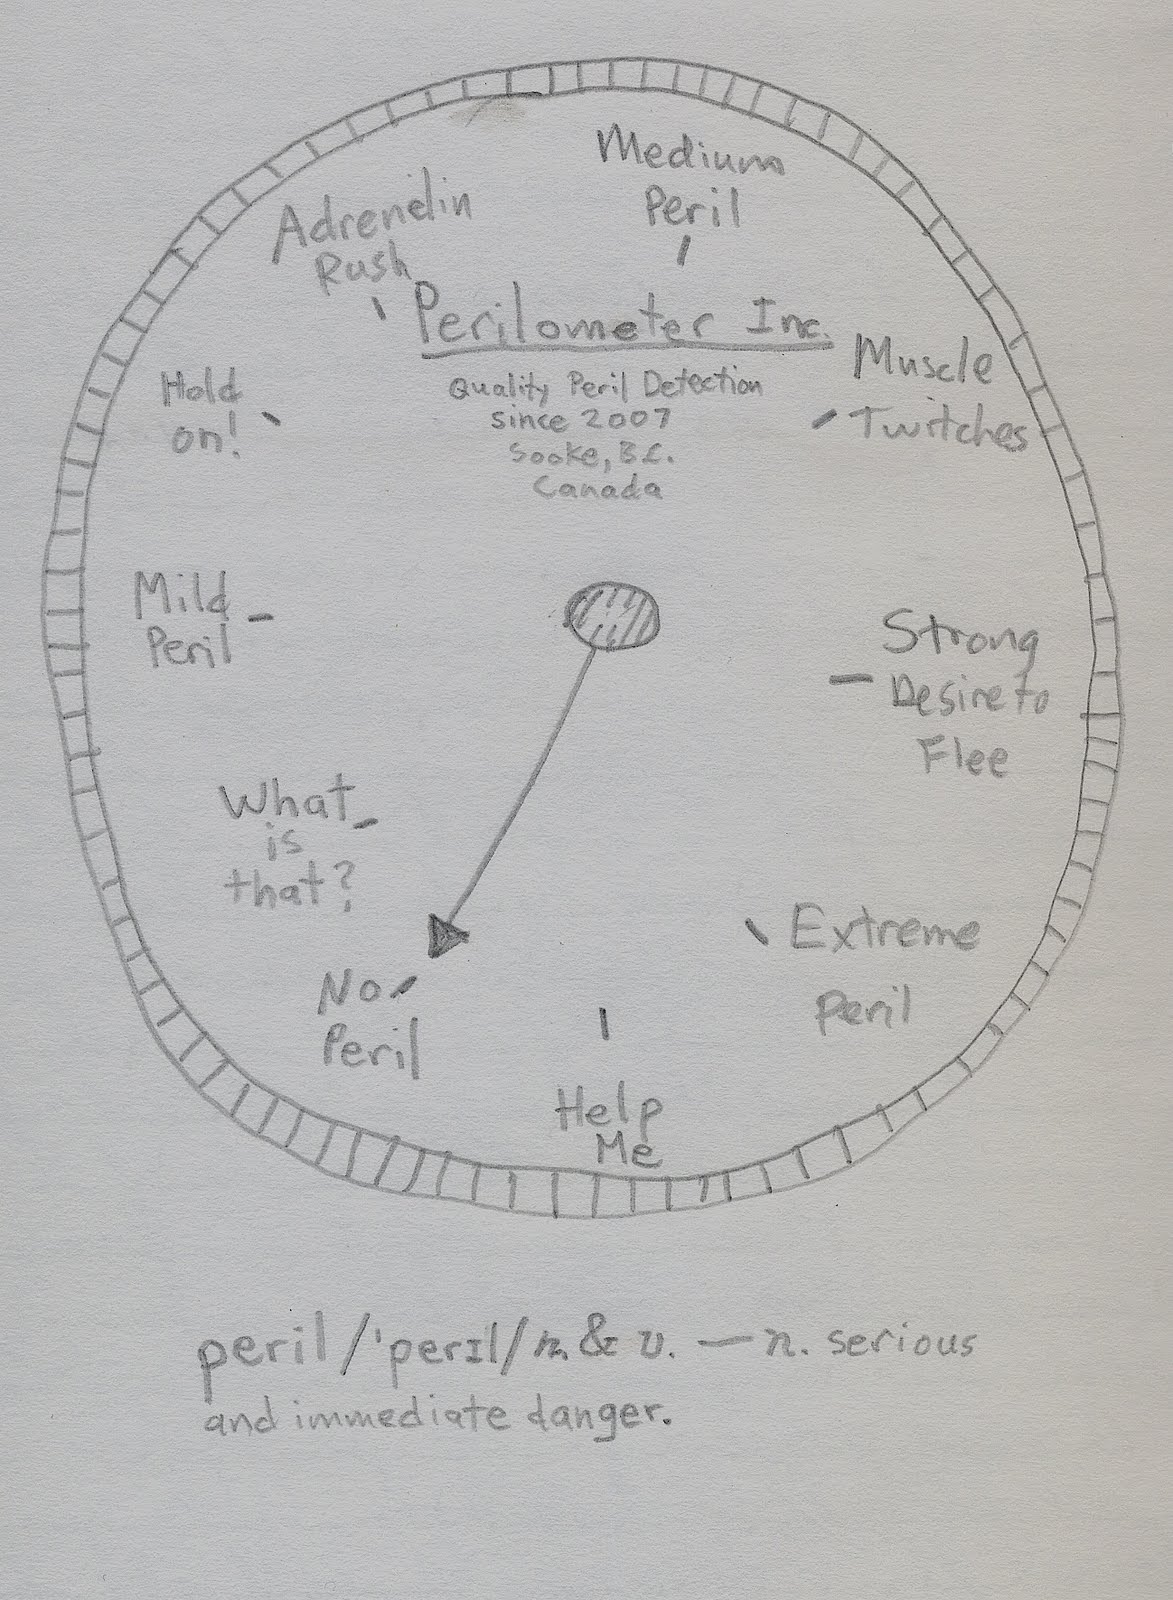 Medium
Peril
Adrenelin
Rush
Perilometer Inc.
Quality Peril Detection
since 2007
Sooke, B.C.
Canada
Hold
on!
Muscle
Twitches
Mild
Peril
Strong
Desire to
Flee
What
is
that?
No
Peril
Extreme
Peril
Help
Me
peril /'perɪl/ n. & v. — n. serious
and immediate danger.